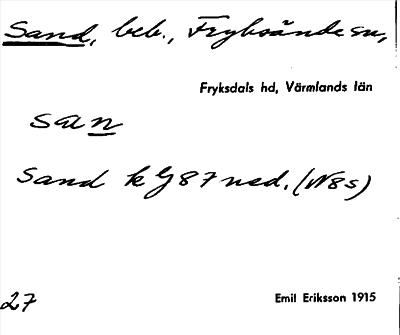 Sand, beb., Fryksände sn,
Fryksdals hd, Värmlands län
san
Sand k G 87 ned. (N8s)
27
Emil Eriksson 1915